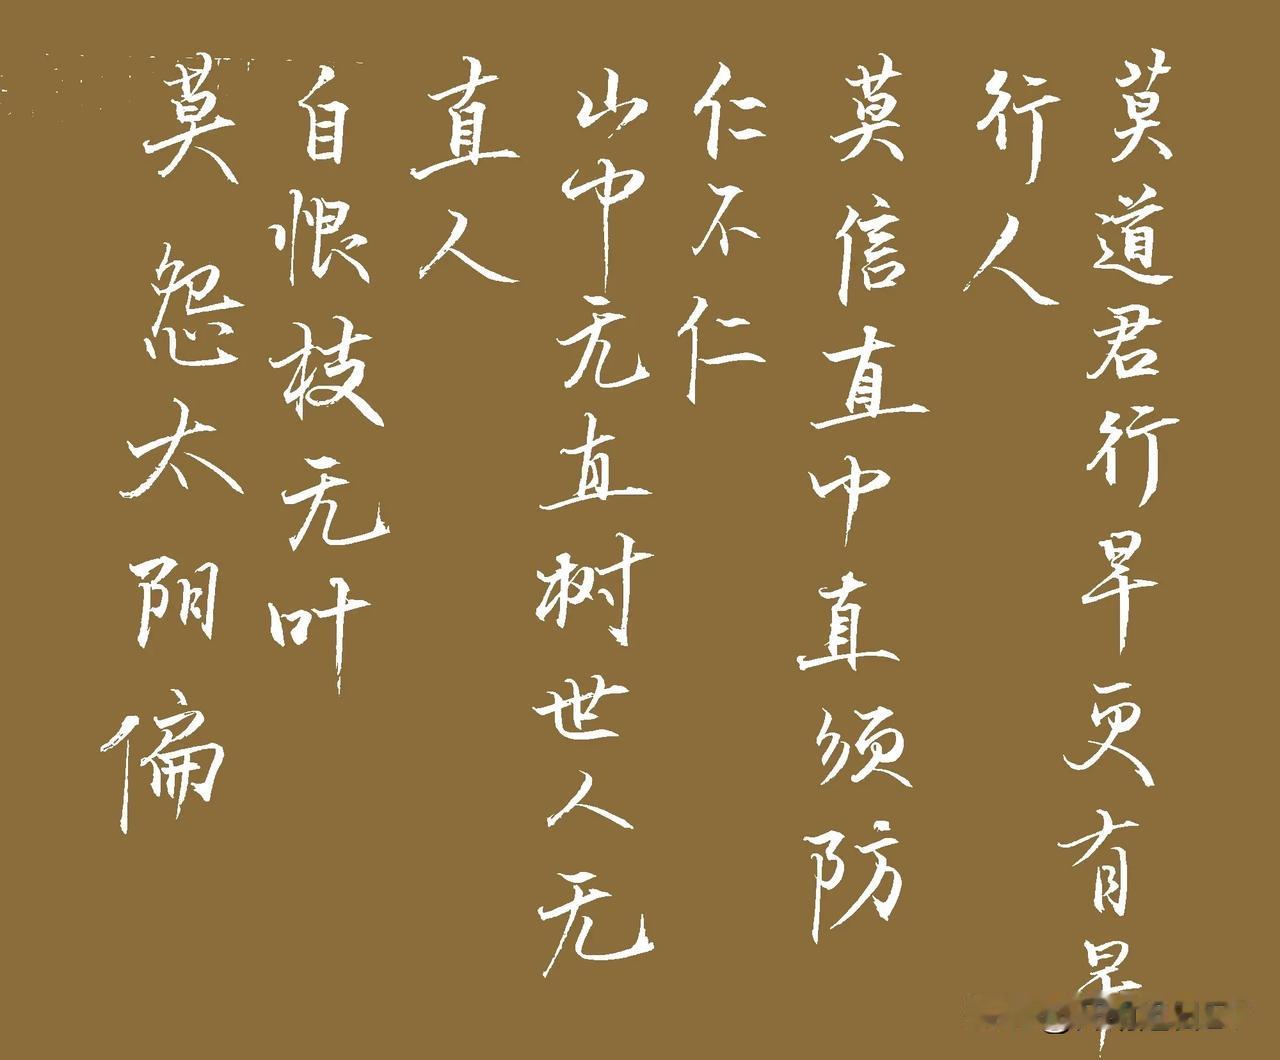 莫道君行早更有早
行人
莫信直中直须防
仁不仁
山中无直树世人无
直人
自恨枝无叶
莫怨太阴偏